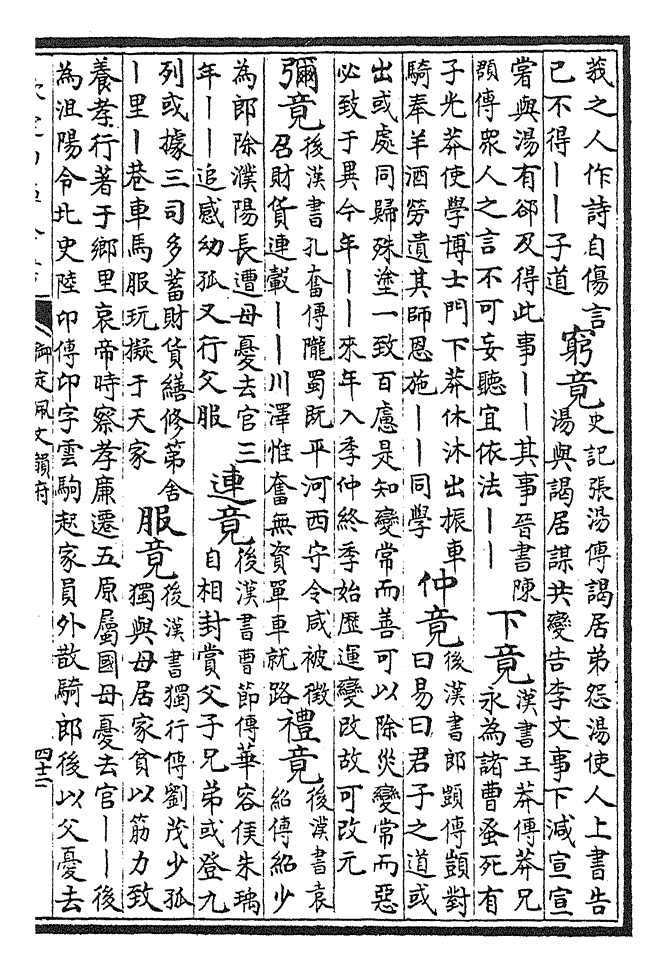 莪之人作詩自傷言
已不得——子道
窮竟
史記張湯傳謁居弟怨湯使人上書告
湯與謁居謀共變告李文事下減宣宣
嘗與湯有卻及得此事——其事晉書陳
頵傳衆人之言不可妄聽宜依法——
下竟
漢書王莽傳莽兄
永為諸曹蚤死有
子光莽使學博士門下莽休沐出振車
騎奉羊酒勞遺其師恩施——同學
仲竟
後漢書郎顗傳顗對
曰易曰君子之道或
出或處同歸殊塗一致百慮是知變常而善可以除災變常而惡
必致于異今年——來年入季仲終季始歷運變改故可改元
彌竟
後漢書孔奮傳隴蜀既平河西守令咸被徵
召財貨連轂——川澤惟奮無資單車就路
禮竟
後漢書袁
紹傳紹少
為郎除濮陽長遭母憂去官三
年——追感幼孤又行父服
連竟
後漢書曹節傳華容侯朱瑀
自相封賞父子兄弟或登九
列或據三司多蓄財貨繕修第舍
—里—巷車馬服玩擬于天家
服竟
後漢書獨行傳劉茂少孤
獨與母居家貧以筋力致
養孝行著于鄉里哀帝時察孝廉遷五原屬國母憂去官——後
為沮陽令北史陸卬傳卬字雲駒起家員外散騎郎後以父憂去
御定佩文韻府
四十二